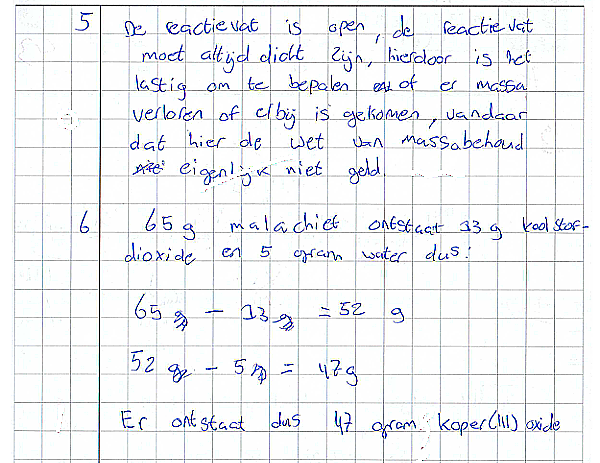 5 De reactievat is open, de reactievat
moet altijd dicht zijn, hierdoor is het
lastig om te bepalen of er massa
verloren of erbij is gekomen, vandaar
dat hier de wet van massabehoud
eigenlijk niet geld
6 65 g malachiet ontstaat 13 g koolstof-
dioxide en 5 gram water dus:
65 g - 13 g = 52 g
52 g - 5 g = 47g
Er ontstaat dus 47 gram koper(III) oxide